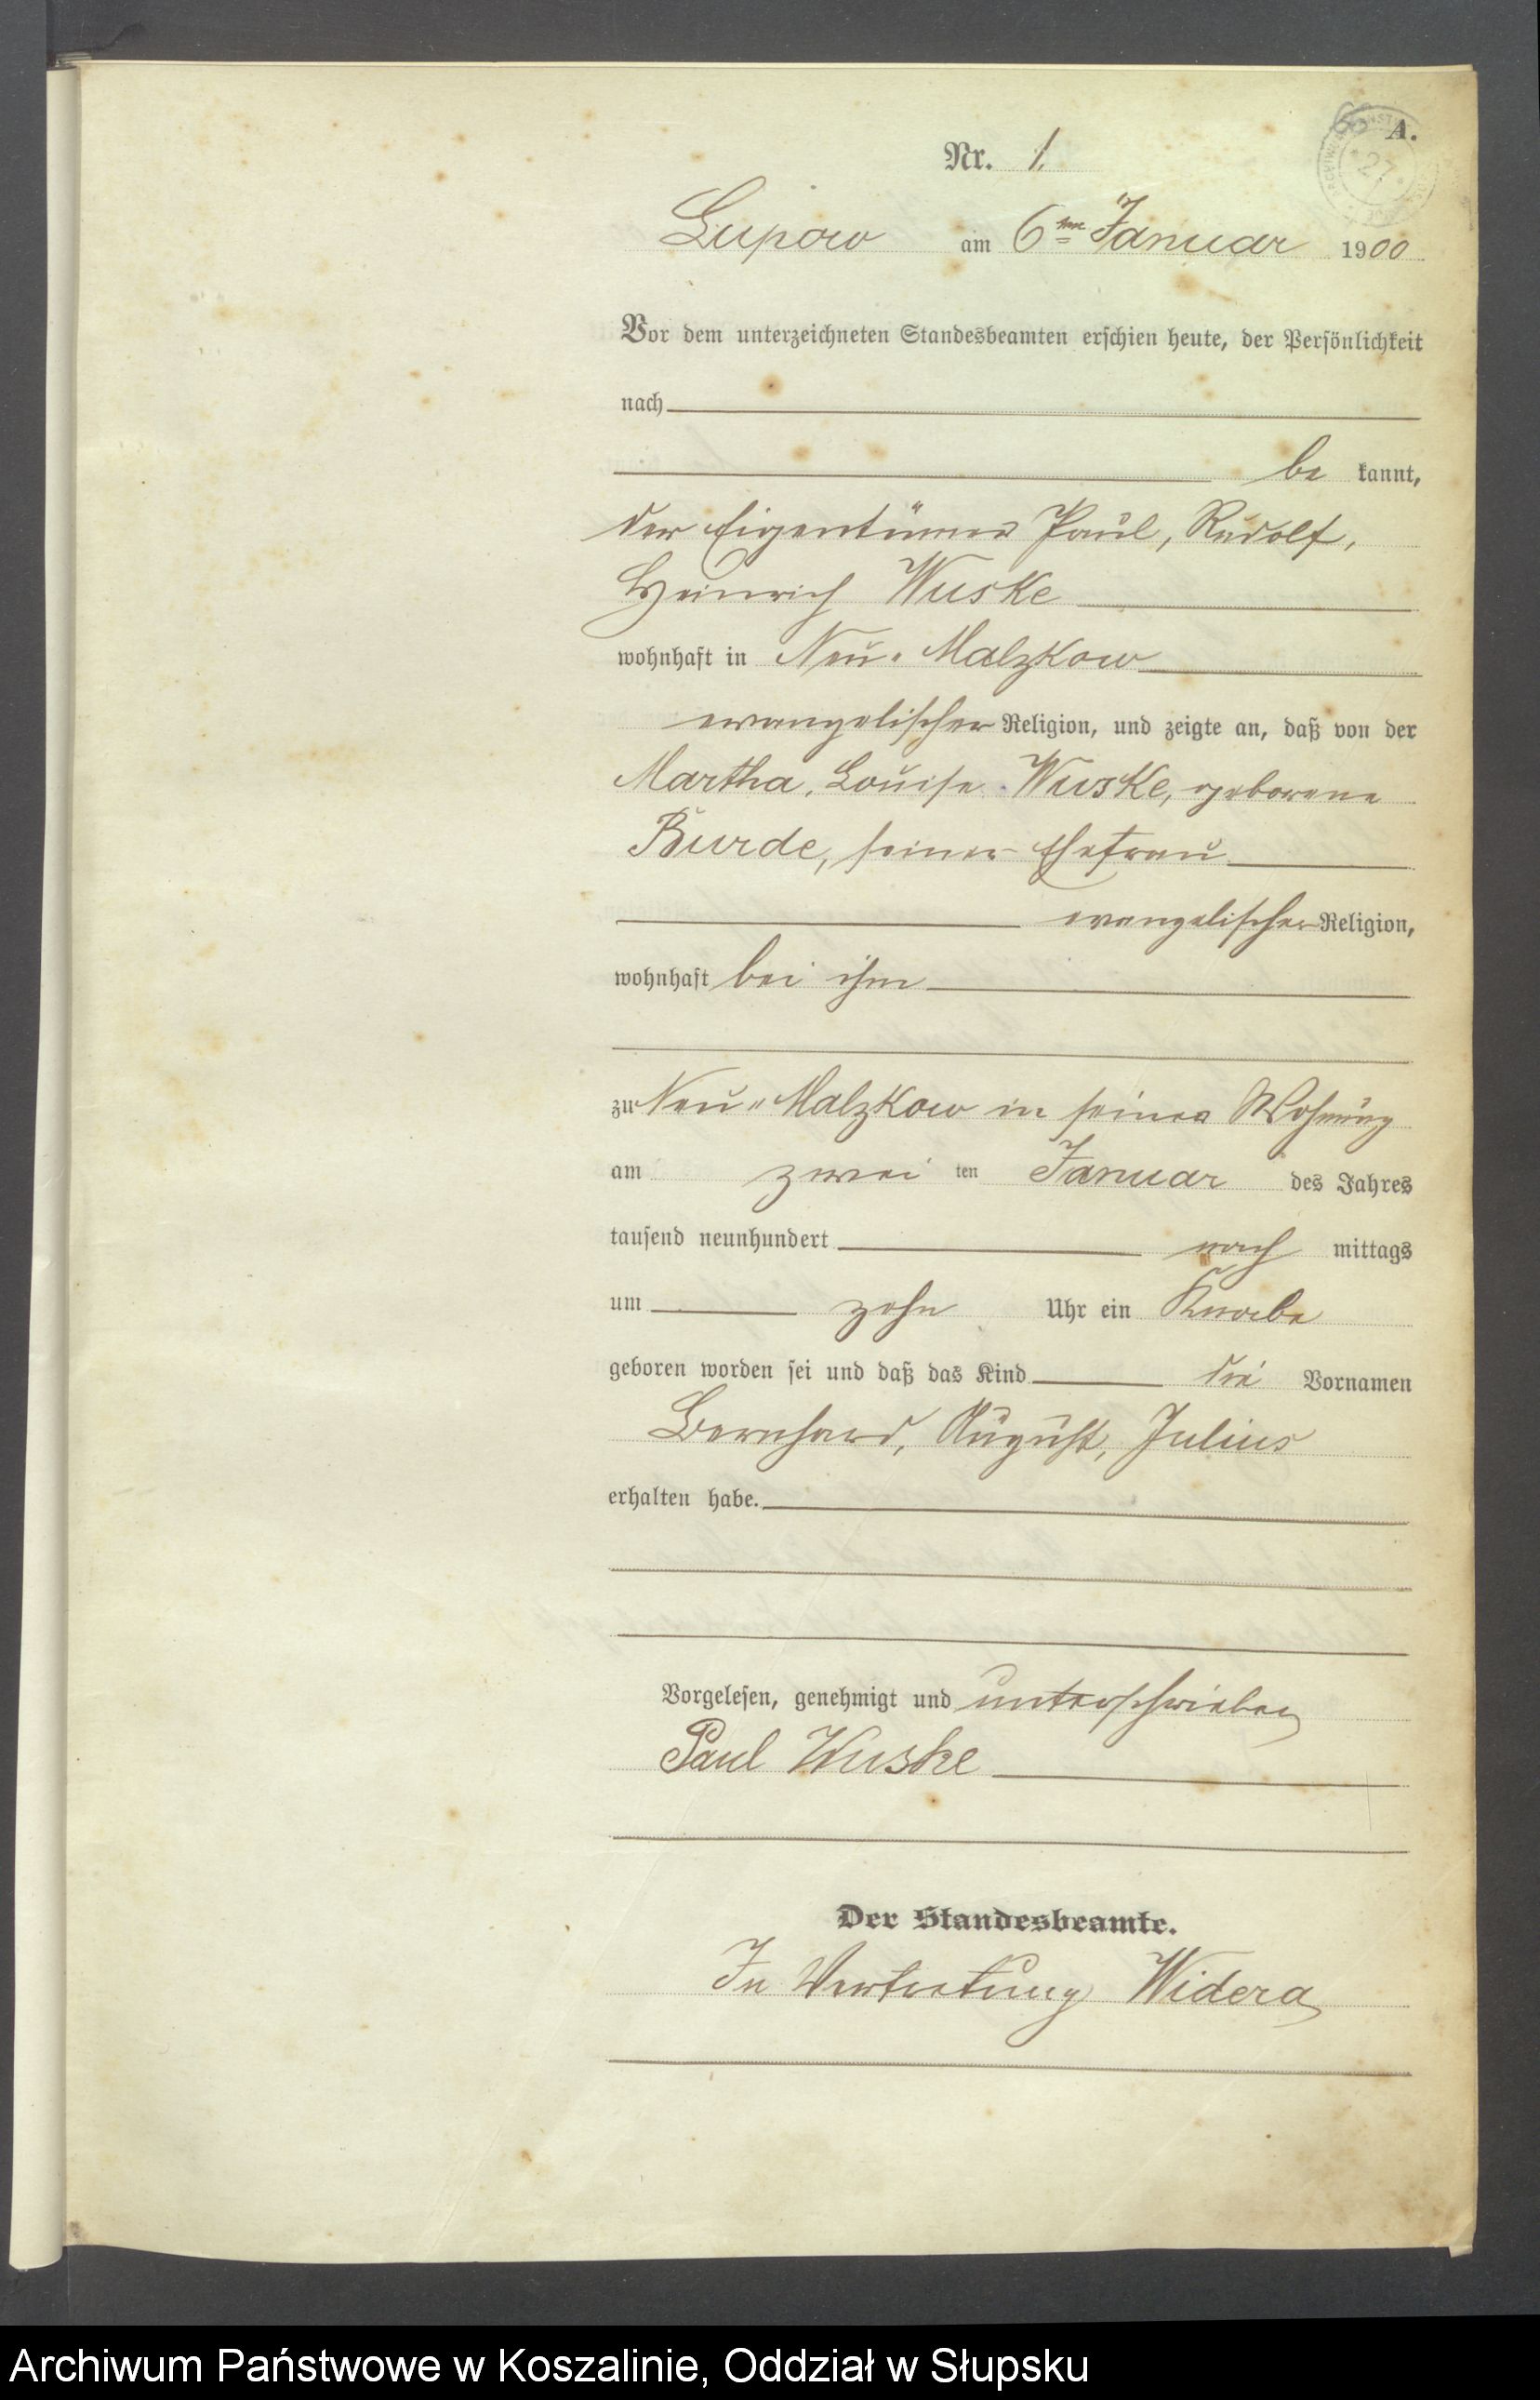 A.
Nr. 1.
Lupow am 6ten Januar 1900
Vor dem unterzeichneten Standesbeamten erschien heute, der Persönlichkeit
nach
be kannt,
der Eigentümer Paul, Rudolf,
Heinrich Wuske
wohnhaft in Neu-Malzkow
evangelischer Religion, und zeigte an, daß von der
Martha, Louise Wuske, geborene
Burde, seiner Ehefrau
evangelischer Religion,
wohnhaft bei ihm
zu Neu-Malzkow in seiner Wohnung
am zwei ten Januar des Jahres
tausend neunhundert nach mittags
um zehn Uhr ein Knabe
geboren worden sei und daß das Kind die Vornamen
Bernhard, August, Julius
erhalten habe.
Vorgelesen, genehmigt und unterschrieben
Paul Wuske
Der Standesbeamte.
In Vertretung Widera
Archiwum Państwowe w Koszalinie, Oddział w Słupsku